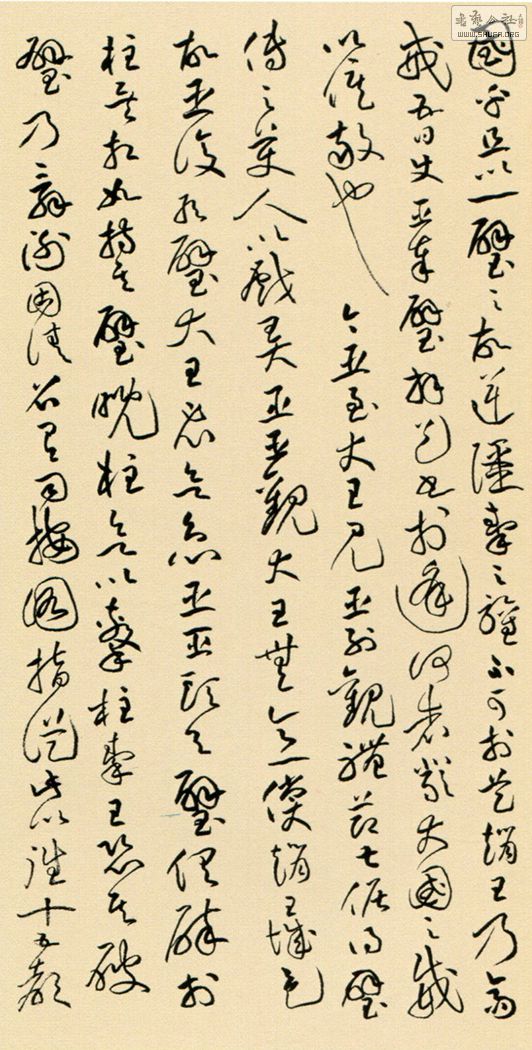 國乎且以一璧之故逆彊秦之驩不可於是趙王乃齋
戒五日使臣奉璧拜送書於庭何者嚴大國之威
以修敬也 今臣至大王見臣列觀禮節甚倨得璧
傳之美人以戲弄臣臣觀大王無意償趙王城邑
故臣復取璧大王必欲急臣臣頭今璧俱碎於
柱矣相如持其璧睨柱欲以擊柱秦王恐其破
璧乃辭謝固請召有司按圖指從此以往十五都
WWW.SHUFA.ORG